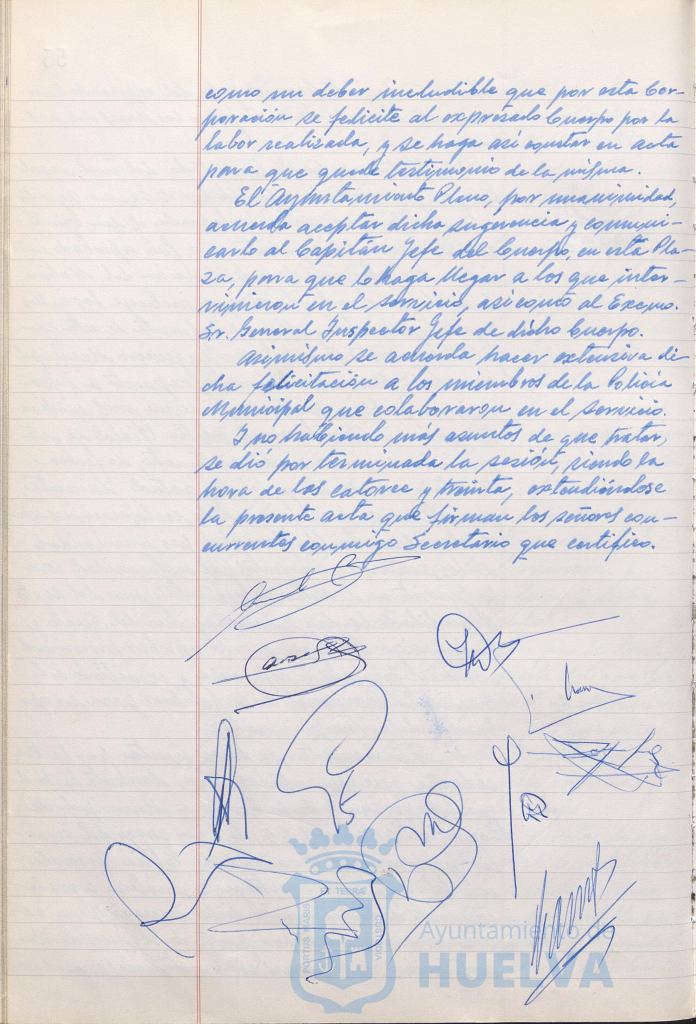 como un deber includible que por esta Cor-
poración se felicite al expresado Cuerpo por la
labor realizada, y se haga así constar en acta
para que quede testimonio de la misma.
El Ayuntamiento Pleno, por unanimidad,
acuerda aceptar dicha sugerencia y comuni-
carlo al Capitán Jefe del Cuerpo, en esta Pla-
za, para que lo haga llegar a los que inter-
vinieron en el servicio, así como al Excmo.
Sr. General Inspector Jefe de dicho Cuerpo.
Asimismo se acuerda hacer extensiva di-
cha felicitación a los miembros de la Policía
Municipal que colaboraron en el servicio.
Y no habiendo más asuntos de que tratar,
se dió por terminada la sesión, siendo la
hora de las catorce y treinta, extendiéndose
la presente acta que firman los señores con-
currentes conmigo Secretario que certifico.
PORTUS MARIS
ET TERRAE
Ayuntamiento de
HUELVA